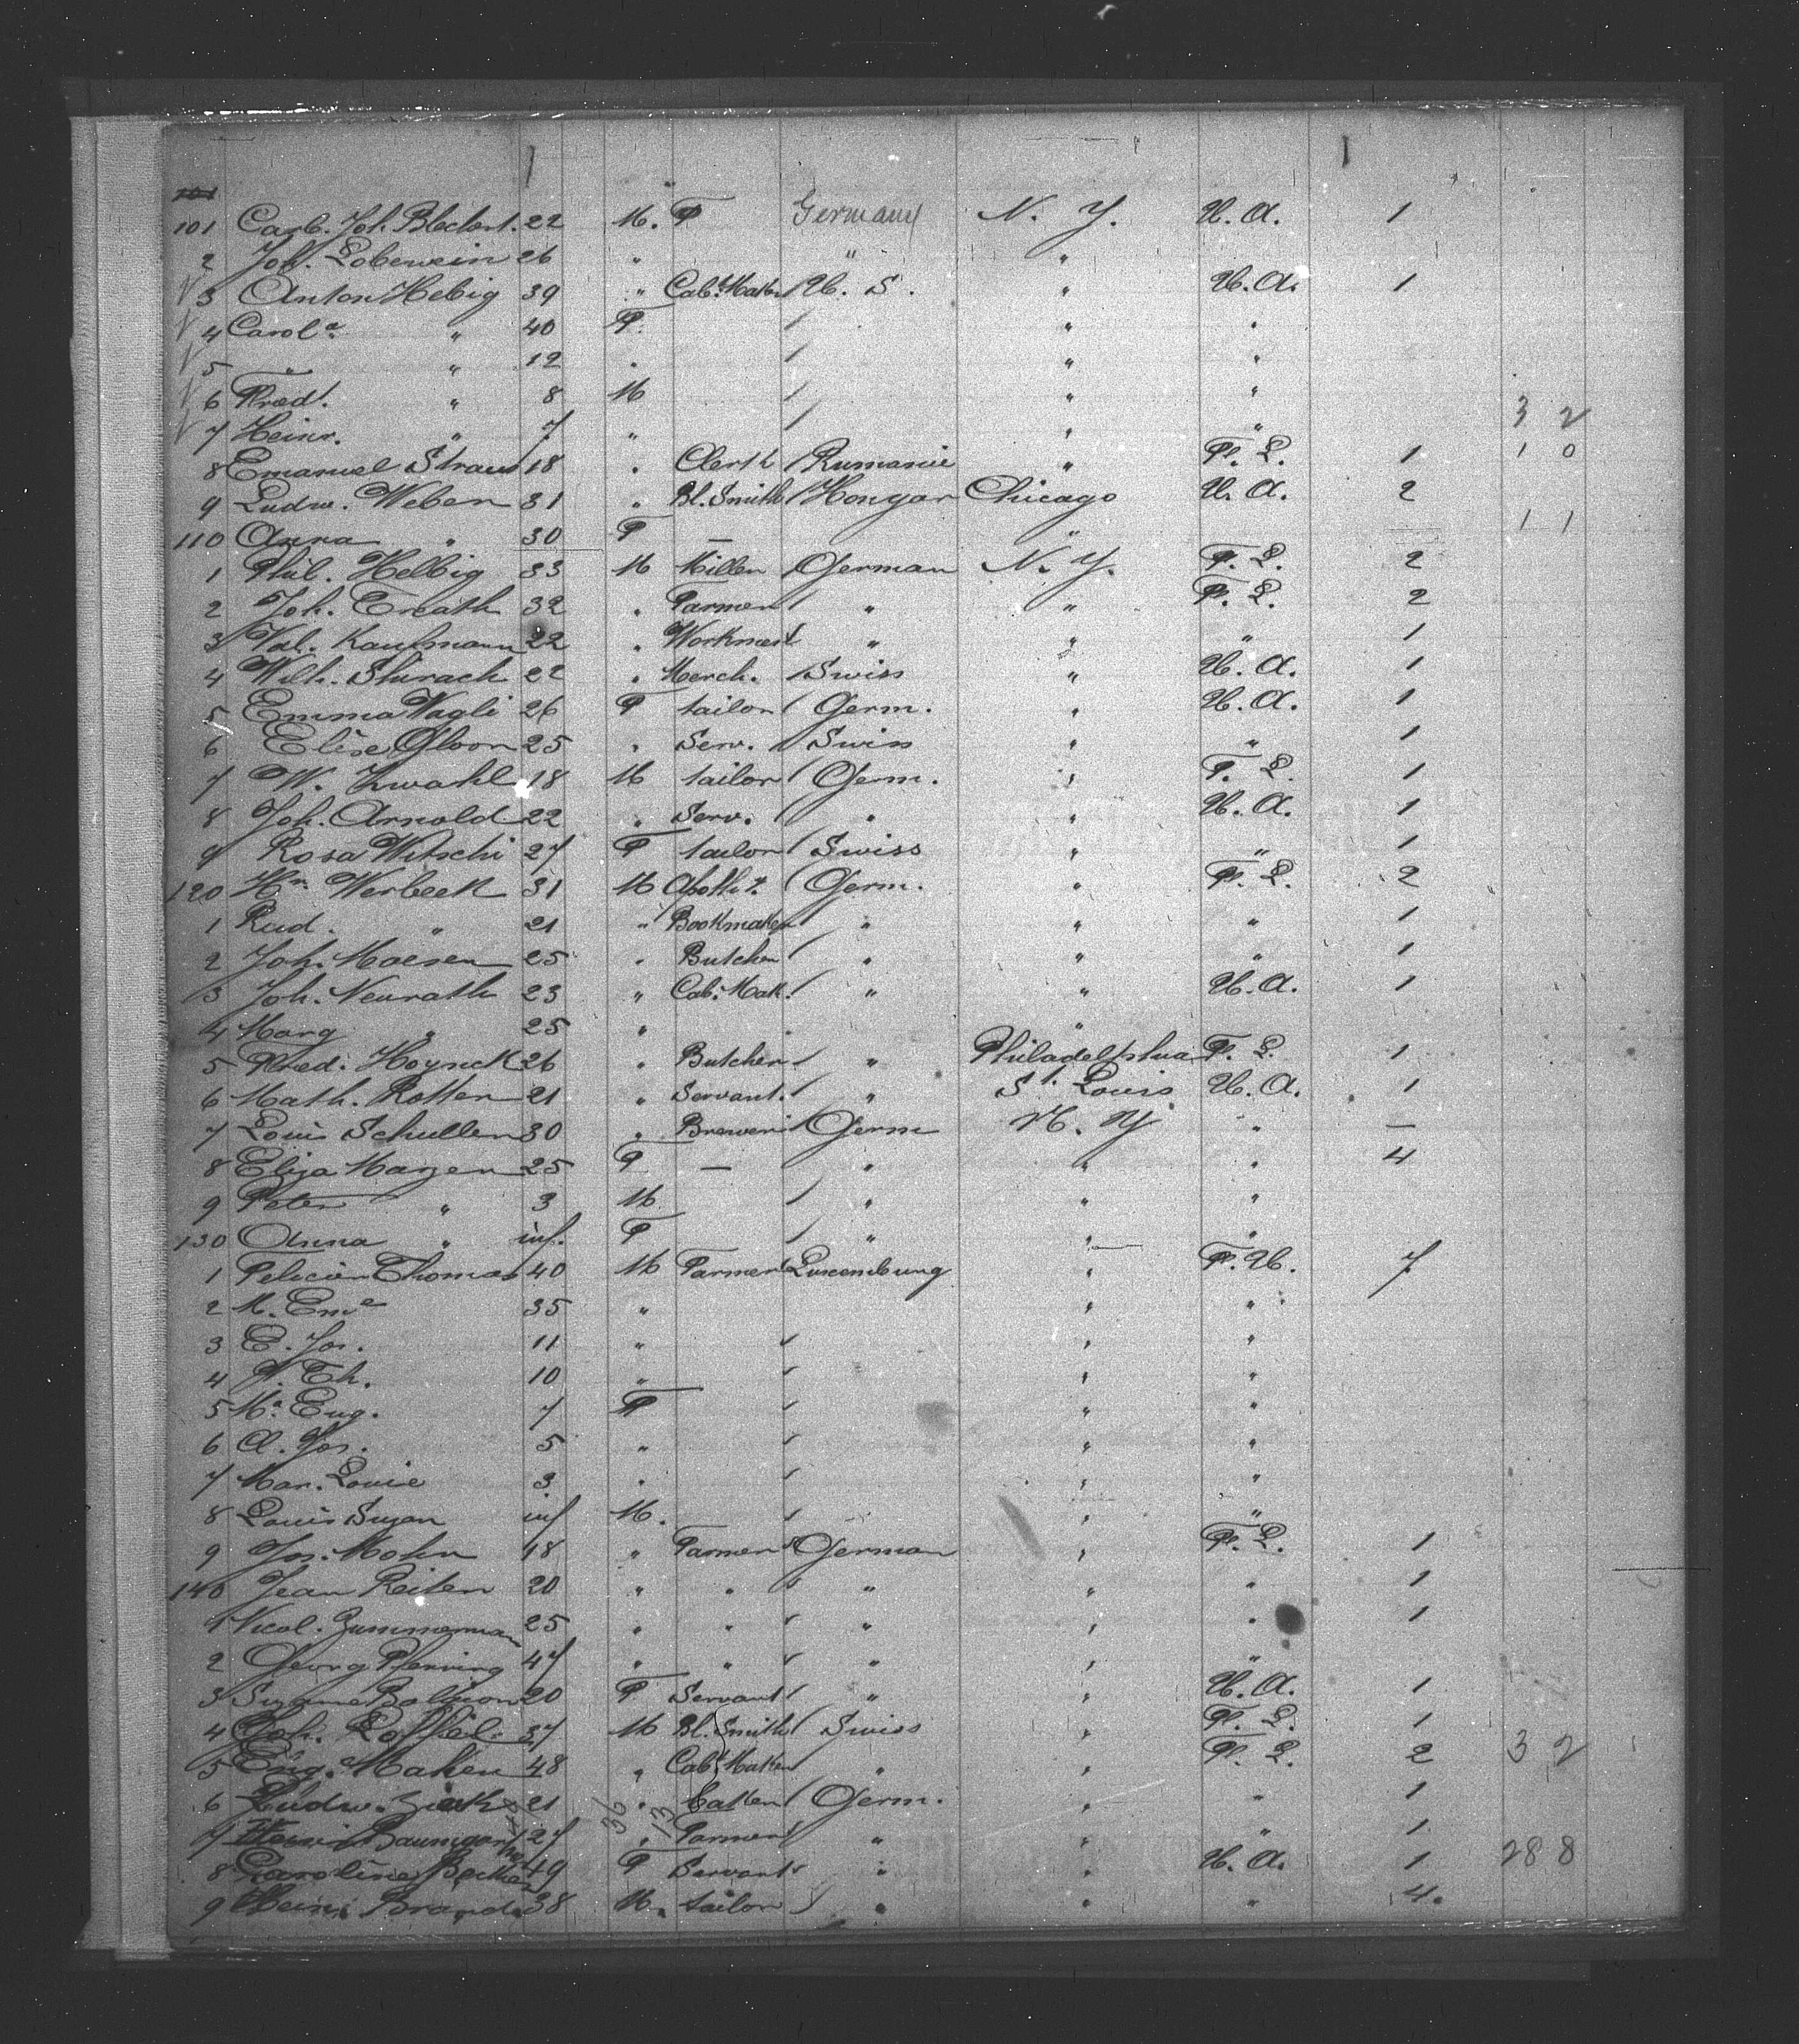 101 Carl. Joh. Blechert. 22 M. F Germany N. Y. U. A. 1
2 Joh. Loberwein 26 " " "
3 Anton Hebig 39 " Cab. Maker U. S. " U. A. 1
4 Carol a " 40 F. " "
5 " " 12 " " "
6 Fred. " 8 M " "
7 Heinr. " 7 " " " 3 2
8 Emanuel Straus 18 " Clerk Rumanie " F. L. 1 1 0
9 Ludw. Weber 31 " Bl. Smith Hongar Chicago U. A. 2
110 Anna " 30 F — " 1 1
1 Phil. Helbig 33 M Miller German N. Y. F. L. 2
2 Joh. Erath 32 " Farmer " " F. L. 2
3 Val. Kaufmann 22 " " " " 1
4 Wilh. Sturach 22 " Merch. Swiss " U. A. 1
5 Emma Vagli 26 F tailor Germ. " U. A. 1
6 Elise Gloor 25 " Serv. Swiss " " 1
7 W. Zwahl 18 M tailor Germ. " F. L. 1
8 Joh. Arnold 22 " Serv. " " U. A. 1
9 Rosa Witschi 27 F tailor Swiss " " 1
120 Hr. Werbeek 31 M Germ. " F. L. 2
1 Rud. " 21 " Bookmaker " " " 1
2 Joh. Moesen 25 " Butcher " " " 1
3 Joh. Neurath 23 " Cab. Mak. " " U. A. 1
4 Marg " 25 " "
5 Fred. Hoynck 26 " Butcher " Philadelphia F. L. 1
6 Math. Rotter 21 " Servant. " St. Louis U. A. 1
7 Louis Schuller 30 " Brewer Germ N. Y " —
8 Eliza Mayer 25 F — " " " 4
9 Peter " 3 M. " " "
130 Anna " inf. F " " "
1 Felicien Thomas 40 M Farmer Luxemburg " F. U. 7
2 M. Em e 35 " " "
3 E. Jos. 11 " " "
4 Th. 10 " " "
5 Ma. Eug. 7 F " "
6 A. Jos. 5 " " "
7 Mar. Louise 3 " " "
8 Louis Suzan inf M. " "
9 Jos. Mohn 18 " Farmer German " F. L. 1
140 Jean Reiter 20 " " " " " 1
1 Nicol. Zummerman 25 " " " " " 1
2 Georg Pfenning 47 " " " " "
3 Suzanne 20 F Servant " " U. A. 1
4 Joh. Loffel 37 M Bl. Smith Swiss " F. L. 1
5 Eug. Maker 48 " Cab Maker " " F. L. 2 3 2
6 Ludw. 21 " Baker Germ. " " 1
7 Baumgart 27 36 " 13 Farmer " " " 1
8 Caroline Becker 49 F Servant " " U. A. 1 28 8
9 Heinr. Brand 38 M. tailor " " " 4.